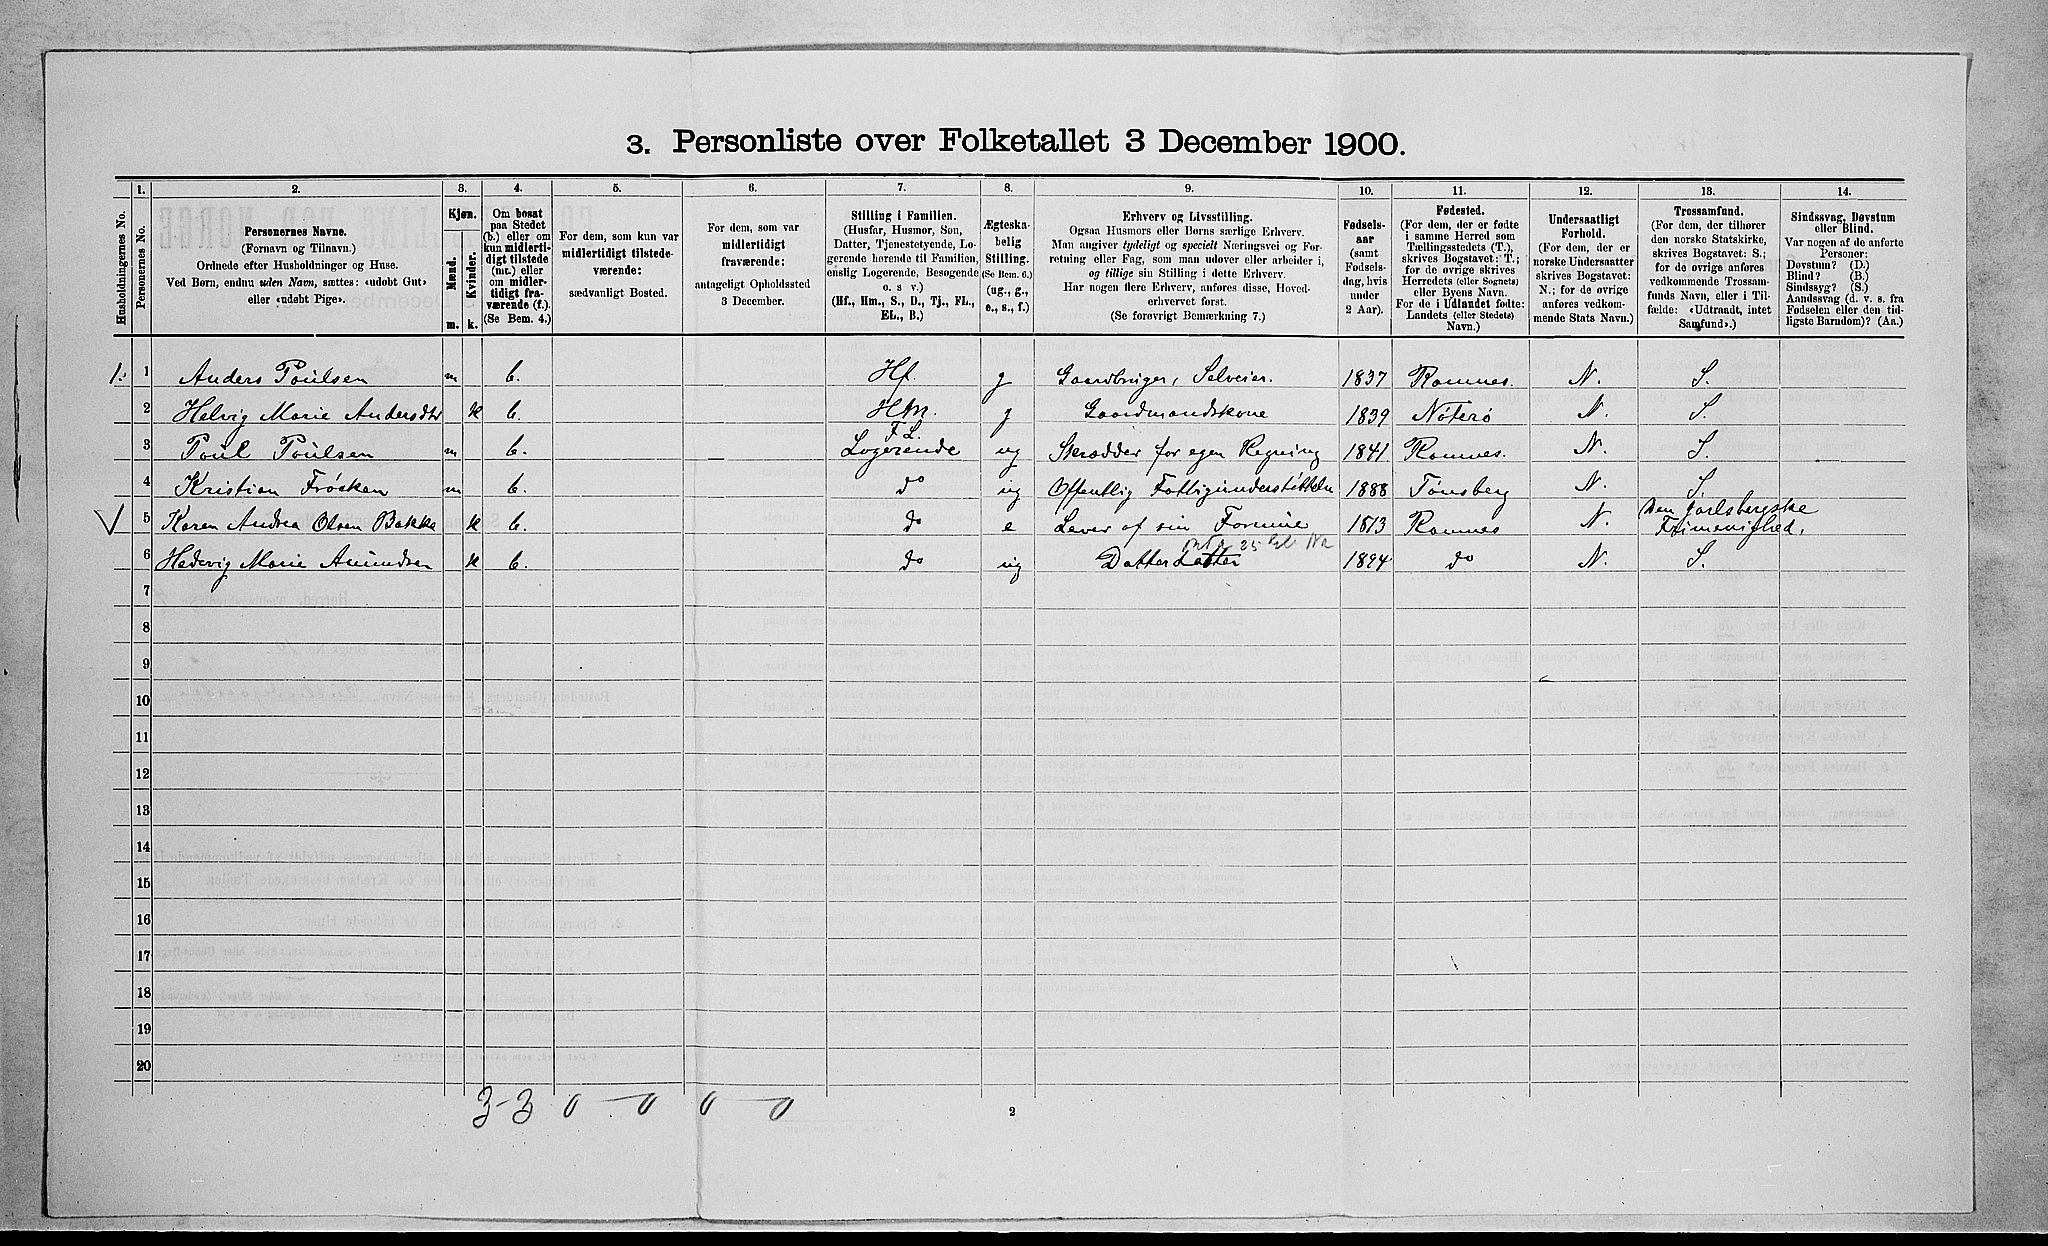 3. Personliste over Folketallet 3 December 1900.
1. 2. 3. 4. 5. 6. 7. 8. 9. 10. 11. 12. 13. 14.
Husholdningernes No.
Personernes No.
Personernes Navne.
(Fornavn og Tilnavn.)
Ordnede efter Husholdninger og Huse.
Ved Børn, endnu uden Navn, sættes: «udøbt Gut»
eller «udøbt Pige».
Kjøn.
Mænd.
Kvinder.
m. k.
Om bosat
paa Stedet
(b.) eller om
kun midlerti-
digt tilstede
(mt.) eller
om midler-
tidigt fra-
værende (f.).
(Se Bem. 4.)
For dem, som kun var
midlertidigt tilstede-
værende:
sædvanligt Bosted.
For dem, som var
midlertidigt
fraværende:
antageligt Opholdssted
3 December.
Stilling i Familien.
(Husfar, Husmor, Søn,
Datter, Tjenestetyende, Lo-
gerende hørende til Familien,
enslig Logerende, Besøgende
o. s v.)
(Hf., Hm., S., D., Tj., FL.,
EL., B.)
Ægteska-
belig
Stilling.
(Se Bem. 6.)
(ug., g.,
e., s., f.)
Erhverv og Livsstilling.
Ogsaa Husmors eller Børns særlige Erhverv.
Man angiver tydeligt og specielt Næringsvei og For-
retning eller Fag, som man udøver eller arbeider i,
og tillige sin Stilling i dette Erhverv.
Har nogen flere Erhverv, anføres disse, Hoved-
erhvervet først.
(Se forøvrigt Bemærkning 7.)
Fødsels-
aar
(samt
Fødsels-
dag, hvis
under
2 Aar).
Fødested.
(For dem, der er fødte
i samme Herred som
Tællingsstedets (T.),
skrives Bogstavet: T.;
for de øvrige skrives
Herredets (eller Sognets)
eller Byens Navn.
For de i Udlandet fødte:
Landets (eller Stedets)
Navn.)
Undersaatligt
Forhold.
(For dem, der er
norske Undersaatter
skrives Bogstavet:
N.; for de øvrige
anføres vedkom-
mende Stats Navn.)
Trossamfund.
(For dem, der tilhører
den norske Statskirke,
skrives Bogstavet: S.;
for de øvrige anføres
vedkommende Trossam-
funds Navn, eller i Til-
fælde: «Udtraadt, intet
Samfund».)
Sindssvag, Døvstum
eller Blind.
Var nogen af de anførte
Personer:
Døvstum? (D.)
Blind? (B.)
Sindssyg? (S.)
Aandssvag (d. v. s. fra
Fødselen eller den tid-
ligste Barndom)? (Aa.)
1. 1 Anders Poulsen m b. Hf. g Gaardbruger, Selveier. 1837 Ramnes. N. S.
2 Helvig Marie Andersdtr k b. Hm. g Gaardmandskone 1839 Nøterø N. S.
F L.
3 Poul Poulsen m b. Logerende ug Skrædder for egen Regning 1841 Ramnes. N. S.
4 Kristian Frøcken m b. do ug Offentlig Fattigunderstøttelse 1888 Tønsberg N. S
5 Karen Andrea Olsen Bakke k b. do e Lever af sin Formue 1813 Ramnes N. Den Jarlsbergske
Frimenighed.
6 Hedevig Marie Amundsen k b. do ug Datter Datter 1894 do N. S.
7
8
9
10
11
12
13
14
15
16
17
18
19
20
3-3 0-0 0-0
2